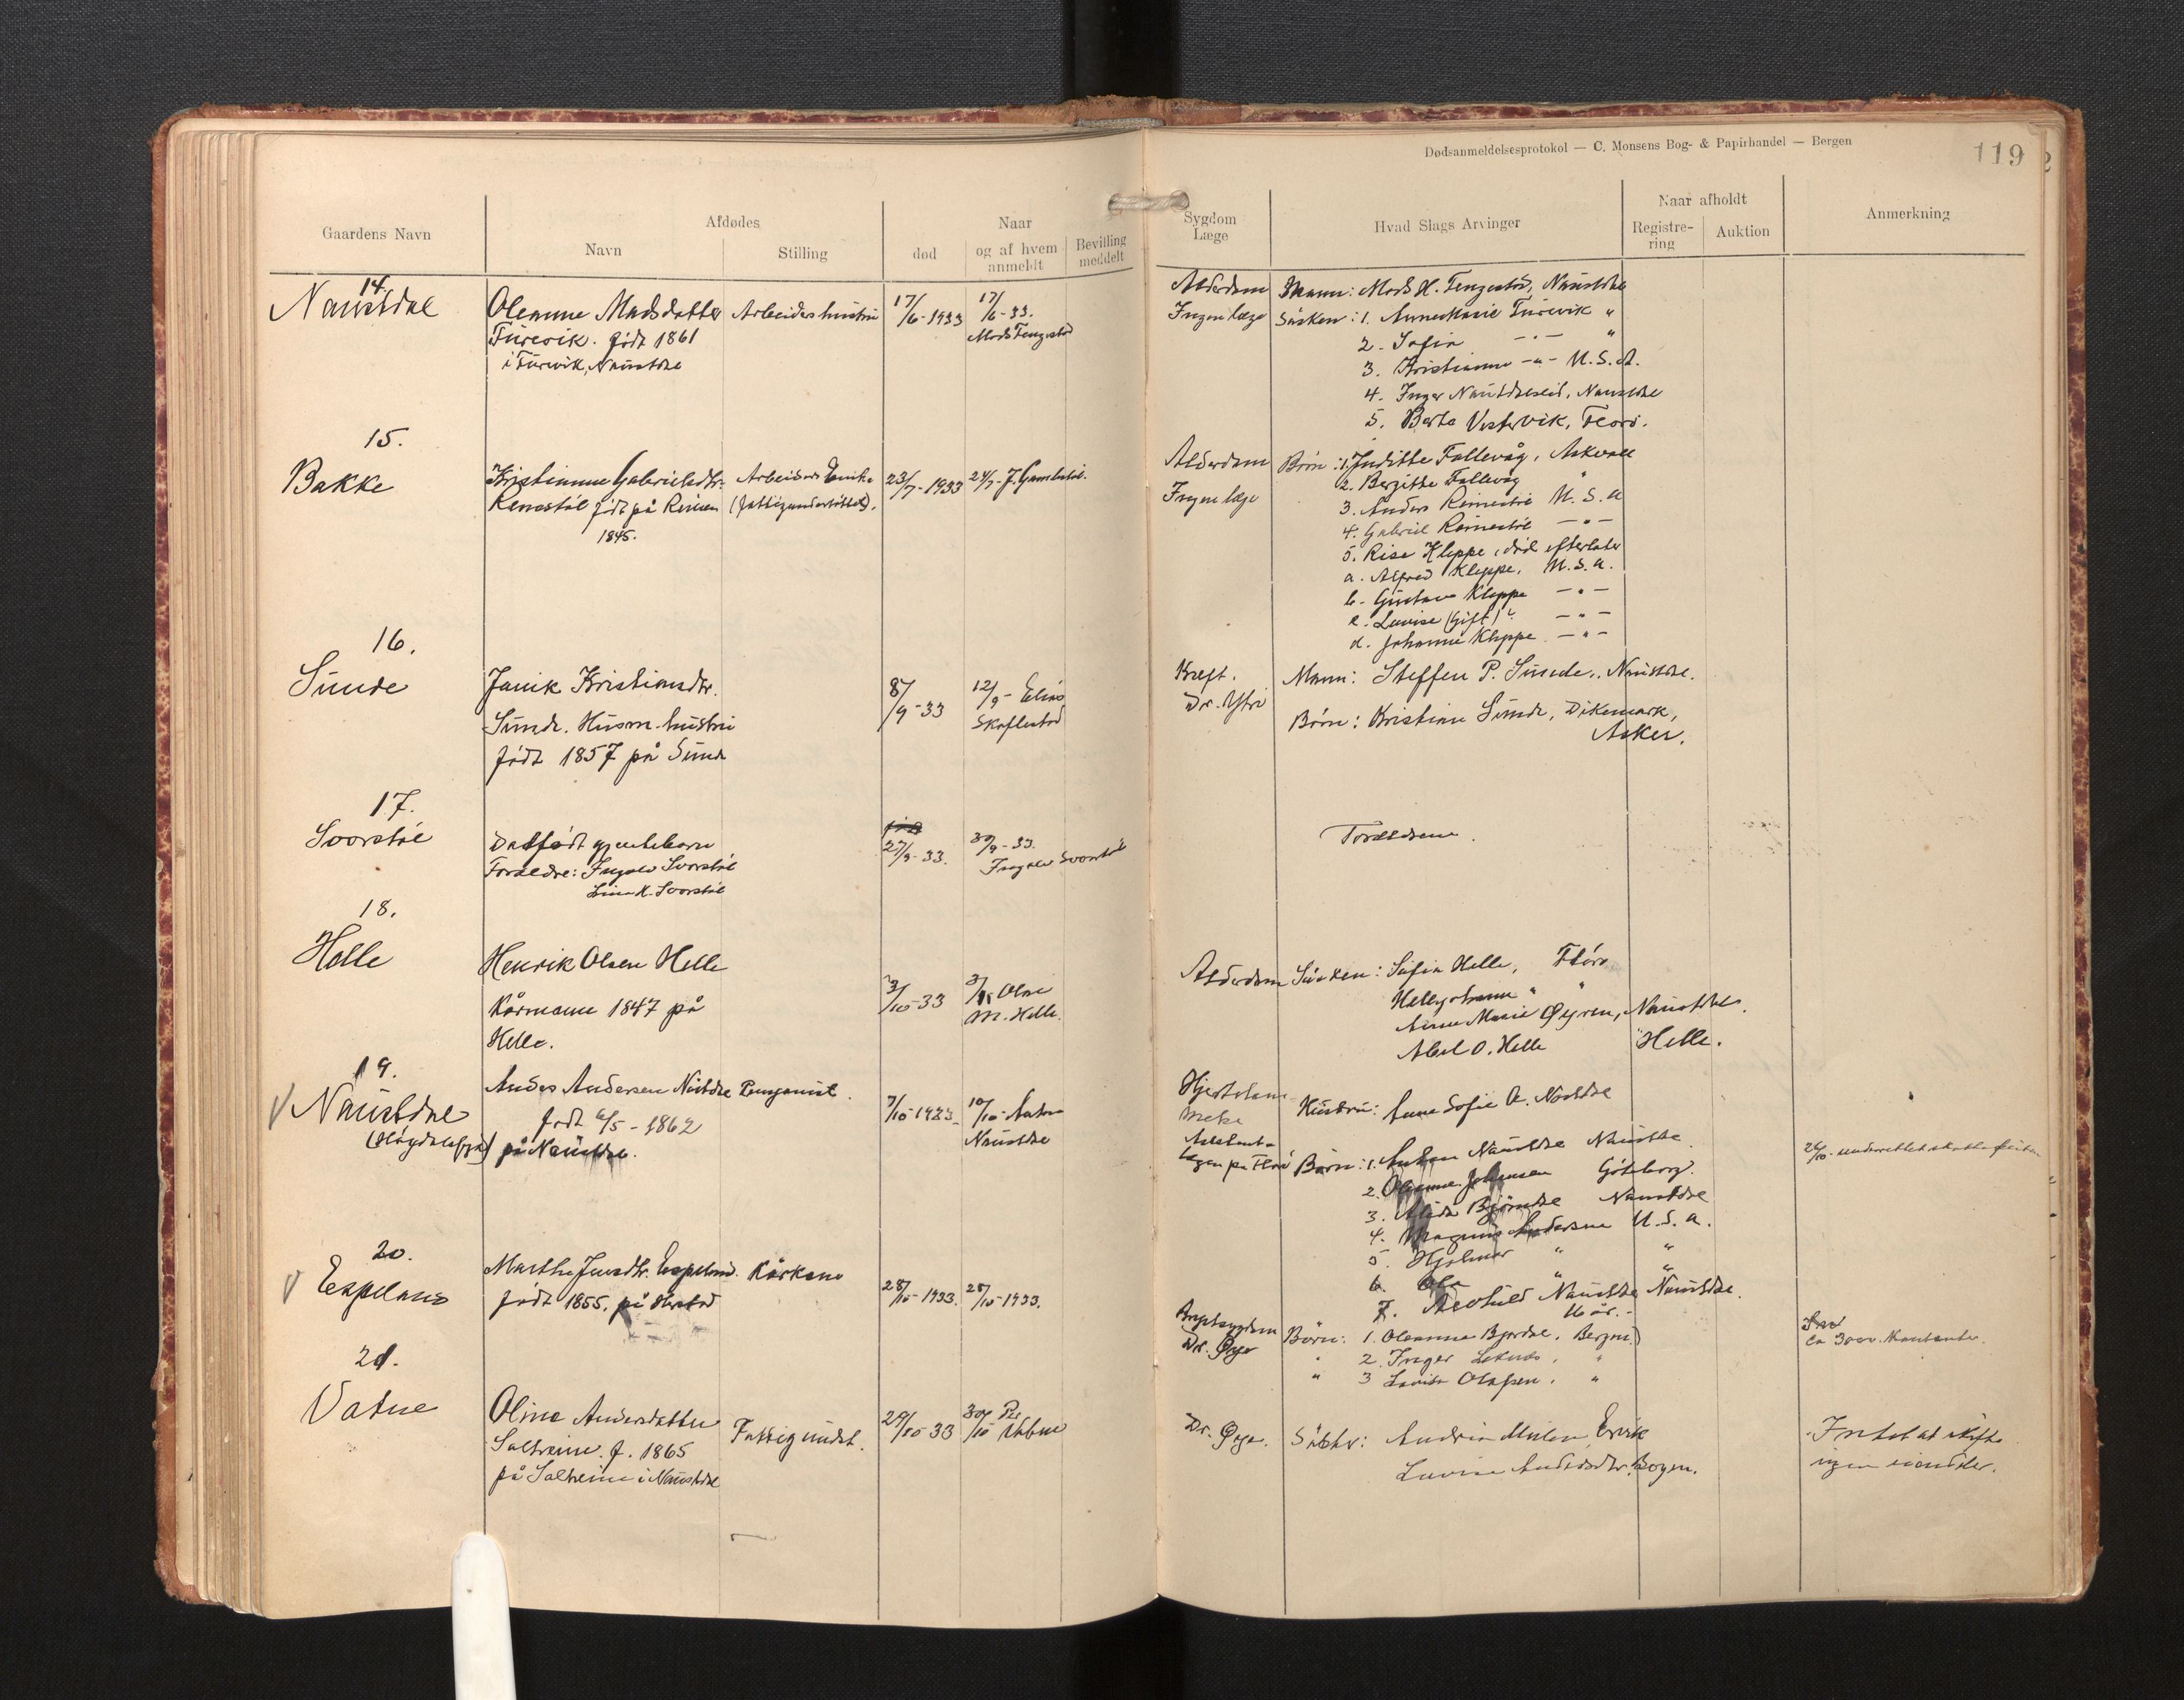 Dødsanmeldelsesprotokol — C. Monsens Bog- & Papirhandel — Bergen
119
Gaardens Navn
Afdødes
Navn
Stilling
død
Naar
og af hvem
anmeldt
Bevilling
meddelt
Sygdom
Læge
Hvad Slags Arvinger
Naar afholdt
Registre-
ring
Auktion
Anmerkning
14.
Naustdal
Oleanne Madsdatter
Furevik. født 1861
i Furevik, Naustdal
Arbeiderhustru
17/6-1933
17/6-33.
Mads
Alderdom
Ingen læge
Mann: Mads H. Naustdal
Søsken: 1. Anne Marie Furevik "
2. Sofia — " — "
3. Kristianna — " — U.S.A.
4. Inger Naustdalseid, Naustdal
5. Berta Vestervik, Florø.
15.
Bakke
Kristianne Gabrielsdtr.
født på Reinen
1845.
Arbeider Enke
(fattigunderstøttet).
23/7-1933
24/7-J.
Alderdom
Ingen læge
Børn: 1. Judithe Fallevåg, Askvoll
2. Bergithe Fallevåg "
3. Anders U.S.A
4. Gabriel — " —
5. Kleppe, død efterlater
a. Alfred Kleppe, U.S.A.
b. Gustav Kleppe — " —
c. Lovise (Gift) " — " —
d. Johanne Kleppe — " —
16.
Sunde
Janik Kristiansdtr.
Sunde. Husm. hustru
født 1857 på Sunde
8/9-33
12/9- Elias
Skaflestad
Kreft.
Dr. Ytri
Mann: Steffen P. Sunde, Naustdal.
Børn: Kristian Sunde, Dikemark,
Asker.
17.
Svorstøl
Dødfødt gjentebarn
Foreldre: Ingolv Svorstøl
Lina K. Svorstøl
27/9-33.
30/9-33.
Ingolv Svorstøl
Foreldrene.
18.
Helle
Henrik Olsen Helle
Kårmann 1847 på
Helle.
3/10-33
Olav
M. Helle.
Alderdom
Søsken: Sofia Helle, Florø
" "
Anne Marie Øyren, Naustdal.
Abel O. Helle Helle.
19.
Naustdal
Anders Andersen Naustdal
født 6/5-1862
på Naustdal.
7/10-1933
10/10- Anton
Naustdal
Florø
Hustru: Anna Sofie A. Naustdal
Børn: 1. Anton Naustdal Naustdal
2. Oleanna Johnsen Göteborg.
3. Naustdal
4. Magnus Andersen U.S.A.
5. Hjalmar " "
6. " "
7. Naustdal Naustdal.
16 år.
20.
Espeland
Marthe Jensdtr. Espeland.
født 1855. på
Kårkone
28/10-1933.
28/10-1933.
Brystsygdom
Dr. Øye
Børn: 1. Oleanna Bergen.
" 2. Inger "
" 3 Lovise Olafsen. "
ca 3000. Kontanter.
21.
Vatne
Oline Andersdatter
Salheim. f. 1865
på Salheim i Naustdal
Fattigundst.
29/10-33
30/10 Per
Vatne
Dr. Øye.
Søstr: Andrea
Lovise Andersdtr.
Intet at skifte